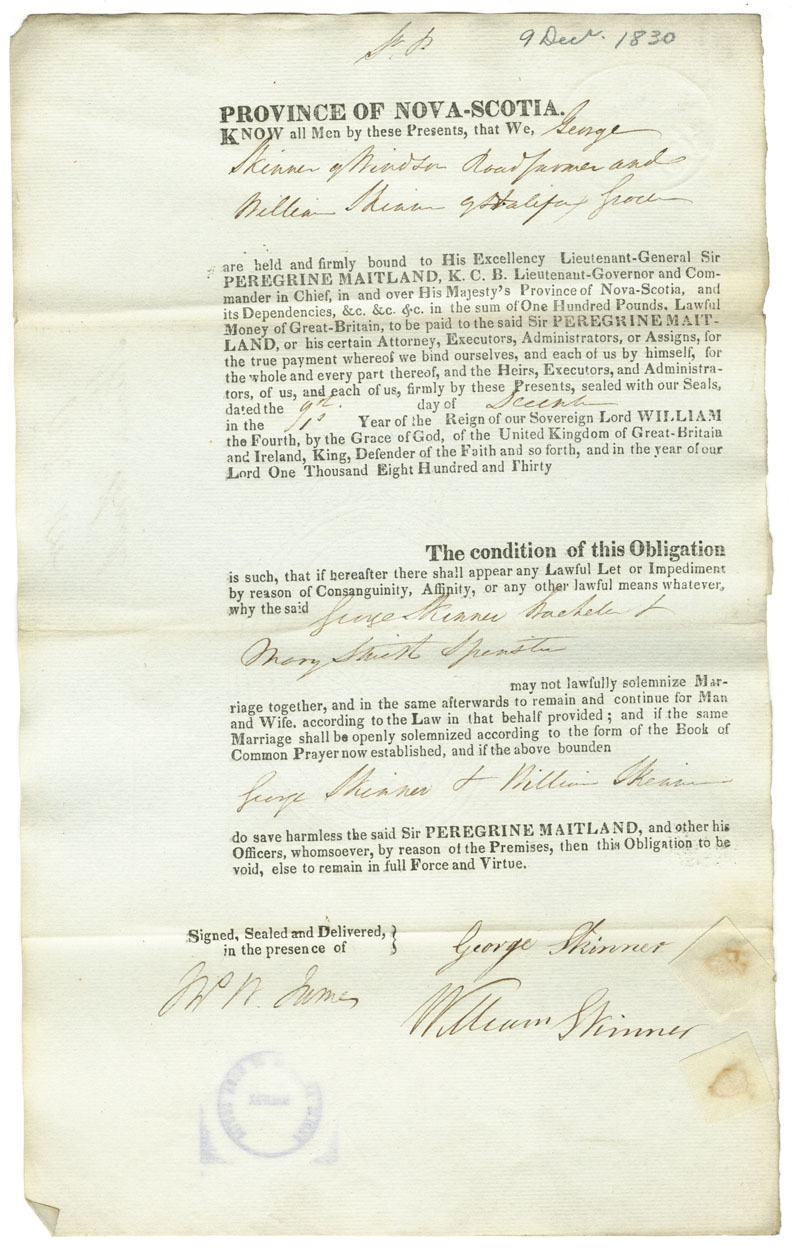 St. P
9 Decr. 1830
PROVINCE OF NOVA-SCOTIA.
KNOW all Men by these Presents, that We, George
Skinner of Windsor Road farmer and
William Skinner of Halifax Grocer
are held and firmly bound to His Excellency Lieutenant-General Sir
PEREGRINE MAITLAND, K. C. B. Lieutenant-Governor and Com-
mander in Chief, in and over His Majesty's Province of Nova-Scotia, and
its Dependencies, &c. &c. &c. in the sum of One Hundred Pounds, Lawful
Money of Great-Britain, to be paid to the said Sir PEREGRINE MAIT-
LAND, or his certain Attorney, Executors, Administrators, or Assigns, for
the true payment whereof we bind ourselves, and each of us by himself, for
the whole and every part thereof, and the Heirs, Executors, and Administra-
tors, of us, and each of us, firmly by these Presents, sealed with our Seals,
dated the 9th. day of December
in the 1s Year of the Reign of our Sovereign Lord WILLIAM
the Fourth, by the Grace of God, of the United Kingdom of Great-Britain
and Ireland, King, Defender of the Faith and so forth, and in the year of our
Lord One Thousand Eight Hundred and Thirty
The condition of this Obligation
is such, that if hereafter there shall appear any Lawful Let or Impediment
by reason of Consanguinity, Affinity, or any other lawful means whatever,
why the said George Skinner Bachelor &
Mary Spinster
may not lawfully solemnize Mar-
riage together, and in the same afterwards to remain and continue for Man
and Wife. according to the Law in that behalf provided; and if the same
Marriage shall be openly solemnized according to the form of the Book of
Common Prayer now established, and if the above bounden
George Skinner & William Skinner
do save harmless the said Sir PEREGRINE MAITLAND, and other his
Officers, whomsoever, by reason of the Premises, then this Obligation to be
void, else to remain in full Force and Virtue.
Signed, Sealed and Delivered,
in the presence of
George Skinner
W. James
William Skinner